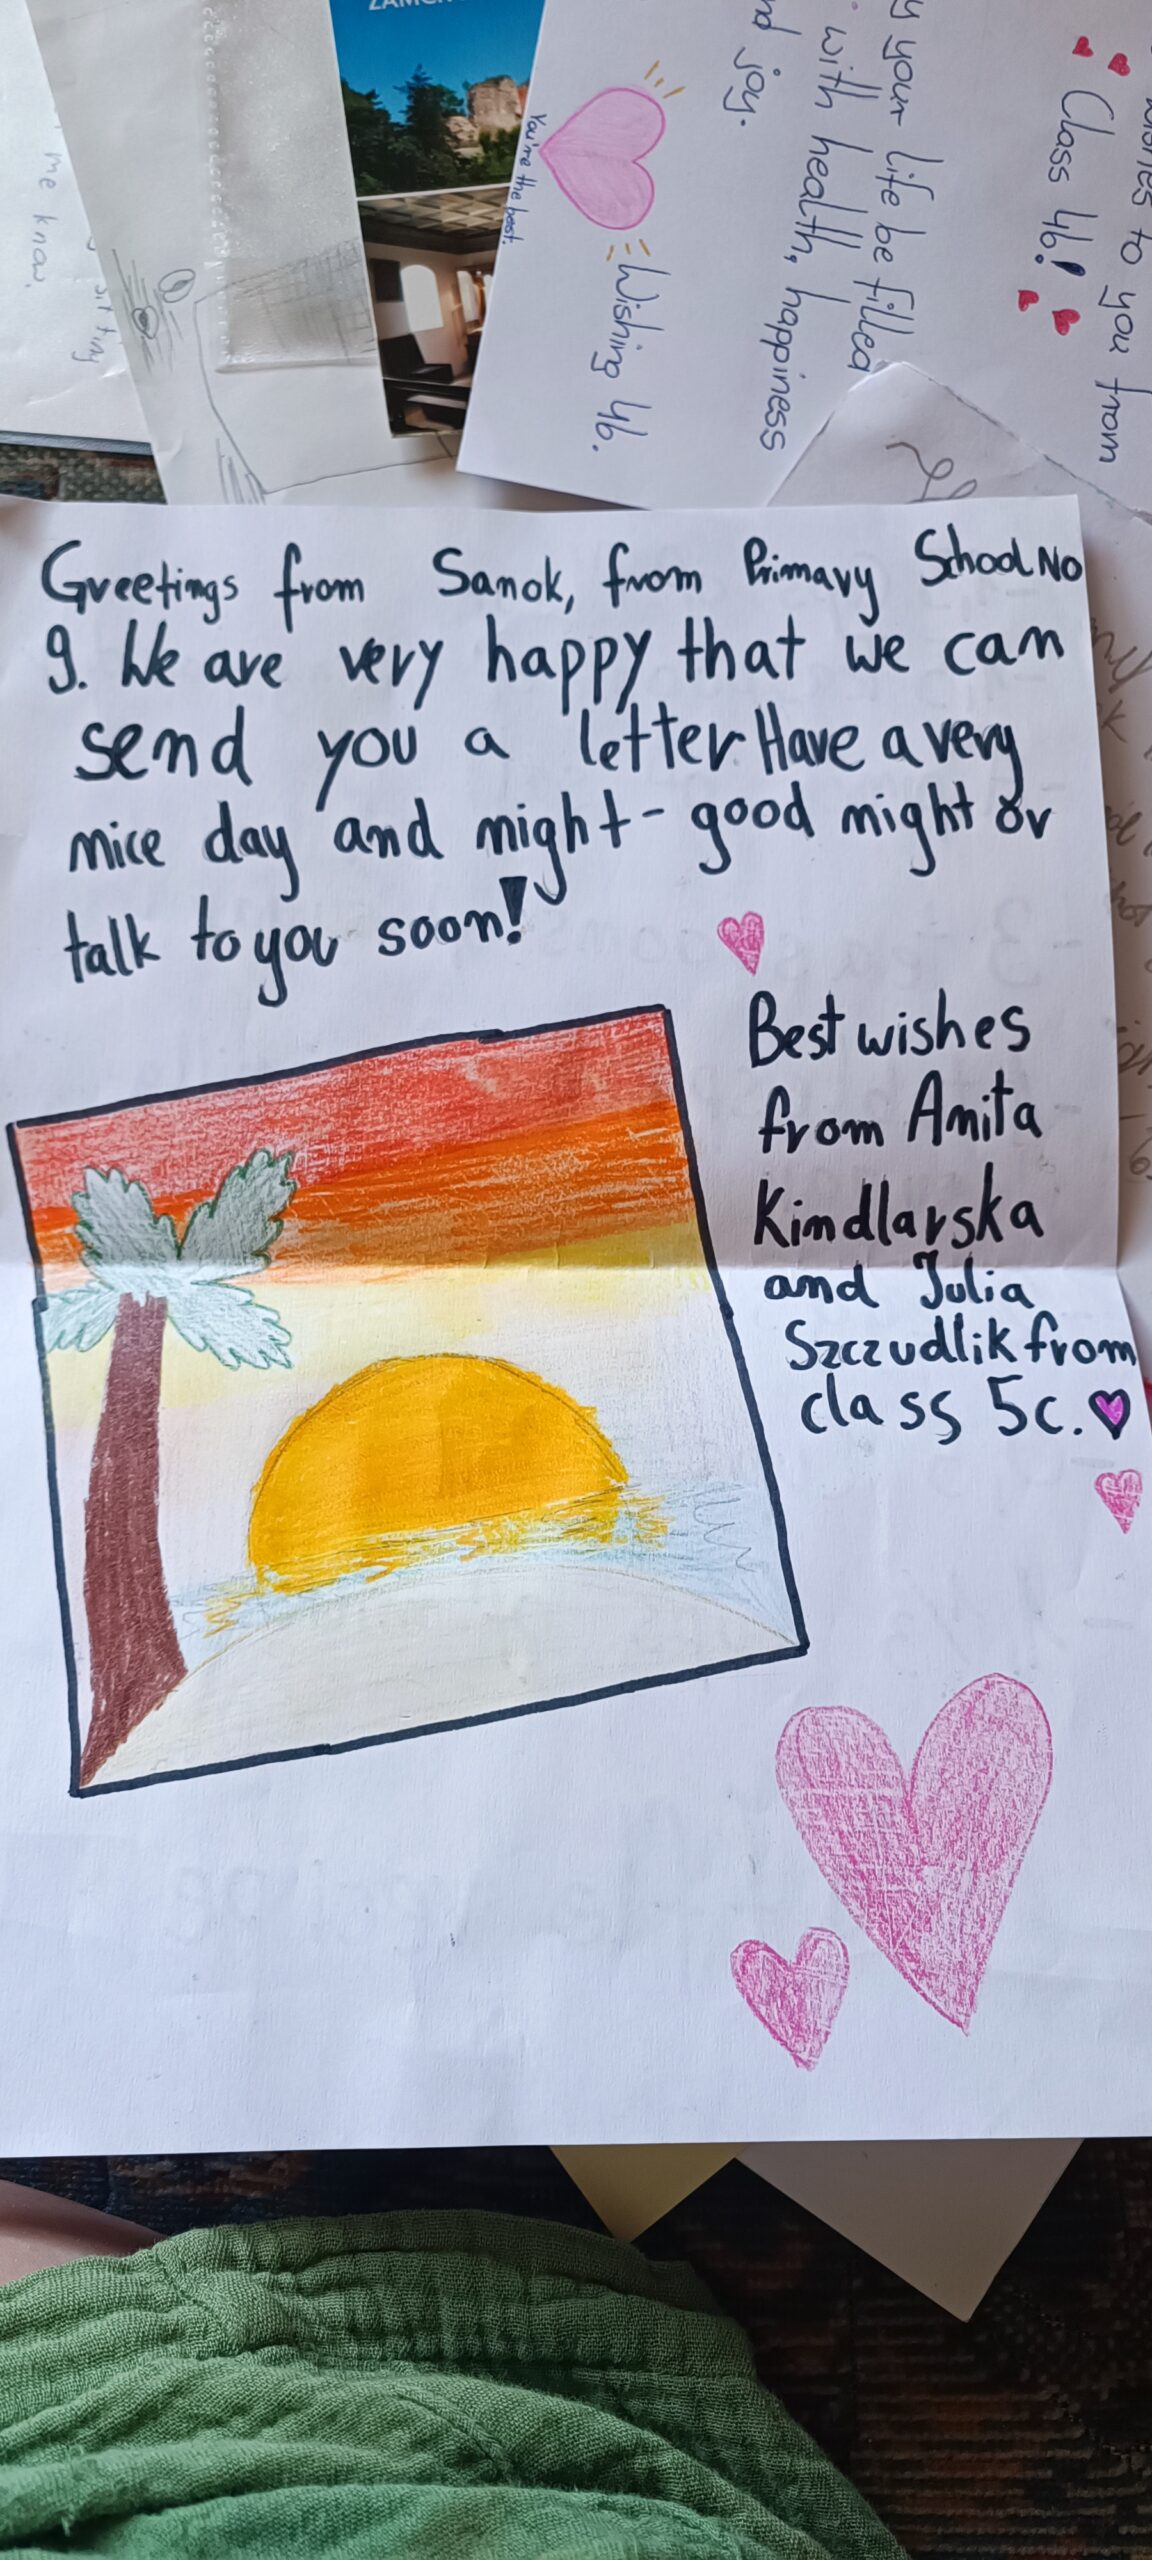 Greetings from Sanok, from Primary School No
9. We are very happy that we can
send you a letter Have a very
nice day and night - good night or
talk to you soon!
Best wishes
from Anita
Kindlarska
and Julia
Szczudlik from
class 5c.
your life be filled
with health, happiness
joy.
Wishing 4b.
You're the best.
to you from
Class 4b!
me know.